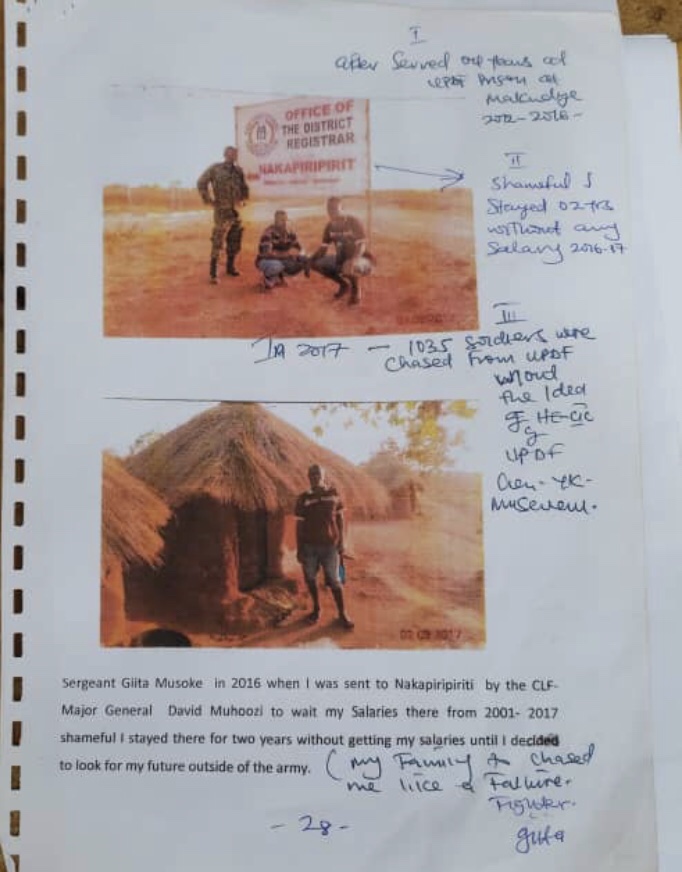 I
after Served 04 years at
UPDF Prison at
Makindye
2012-2016-
OFFICE OF
THE DISTRICT
REGISTRAR
NAKAPIRIPIRIT
II
Shameful I
Stayed 02 yrs
without any
Salary 2016-17
III
IN 2017 - 1035 Soldiers were
chased from UPDF
the Idea
of HE-CIC
UPDF
Gen-YK-
Museveni.
02 09 2017
Sergeant Giita Musoke in 2016 when I was sent to Nakapiripiriti by the CLF-
Major General David Muhoozi to wait my Salaries there from 2001- 2017
shameful I stayed there for two years without getting my salaries until I decided
to look for my future outside of the army. (my Family chased
me like a Failure.
Fighter.
-28-
giita